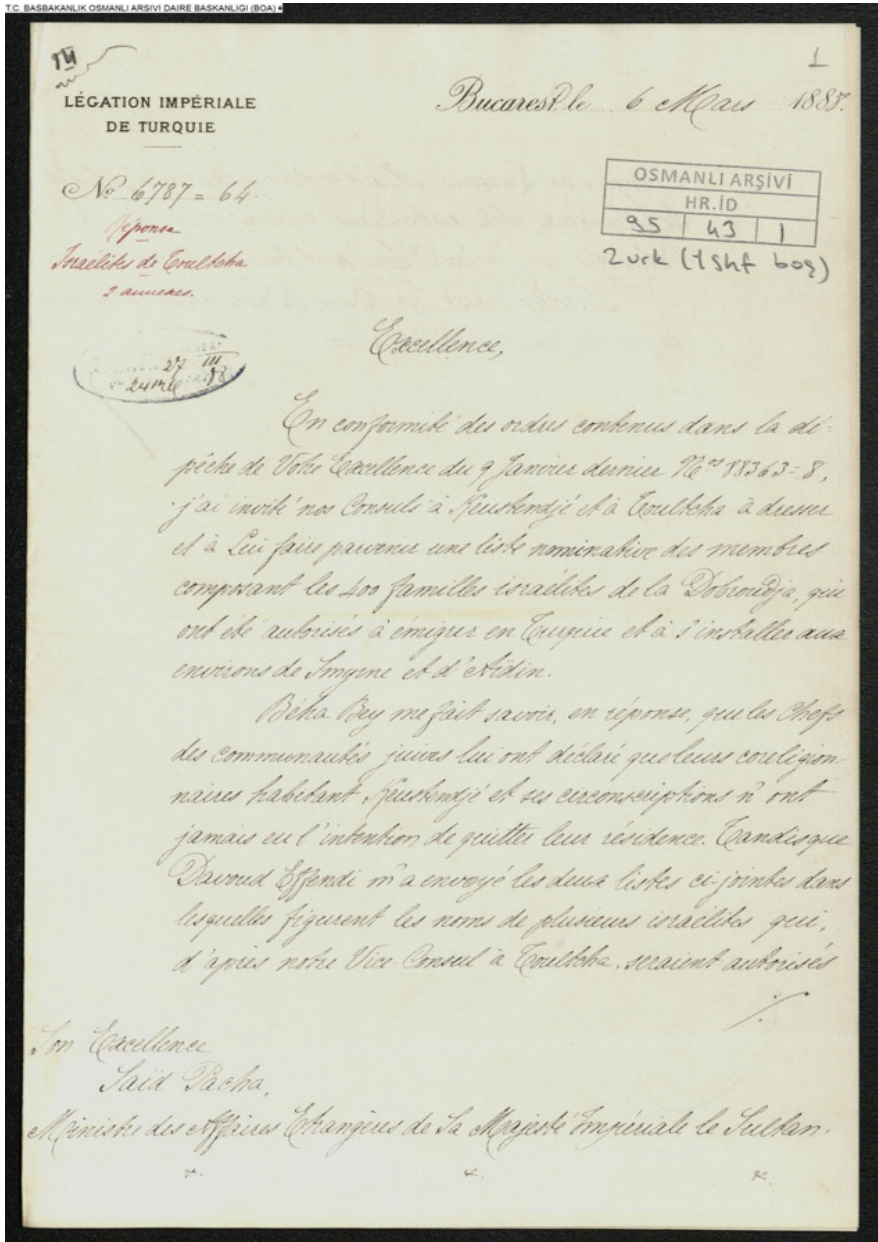 T.C. BASBAKANLIK OSMANLI ARSIVI DAIRE BASKANLIGI (BOA)
1
LÉGATION IMPÉRIALE
DE TURQUIE
Bucarest, le 6 Mars 188
No 6787=64.
réponse
Israélites de Toultcha
2 annexes.
OSMANLI ARŞİVİ
HR.İD
95 43 1
2 vrk (1 shf boş)
27 III
Excellence,
En conformité des ordres contenus dans la dé=
pêche de Votre Excellence du 9 Janvier dernier Nos 88363=8,
j'ai invité nos Consuls à Keustendjé et à Toultcha à dresser
et à Lui faire parvenir une liste nominative des membres
composant les 400 familles israélites de la Dobroudja, qui
ont été autorisés à émigrer en Turquie et à s'installer aux
environs de Smyrne et d'Aïdin.
Béha Bey me fait savoir, en réponse, que les Chefs
des communautés juives lui ont déclaré que leurs coreligion=
naires habitant Keustendjé et ses circonscriptions n'ont
jamais eu l'intention de quitter leur résidence. Tandis que
Davoud Effendi m'a envoyé les deux listes ci-jointes dans
lesquelles figurent les noms de plusieurs israélites qui,
d'après notre Vice-Consul à Toultcha, seraient autorisés
./.
Son Excellence
Saïd Pacha,
Ministre des Affaires Etrangères de Sa Majesté Impériale le Sultan.